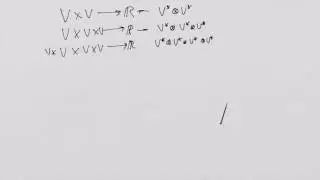 V × V → ℝ – V* ⊗ V*
V × V × V → ℝ – V* ⊗ V* ⊗ V*
V × V × V × V → ℝ V* ⊗ V* ⊗ V* ⊗ V*